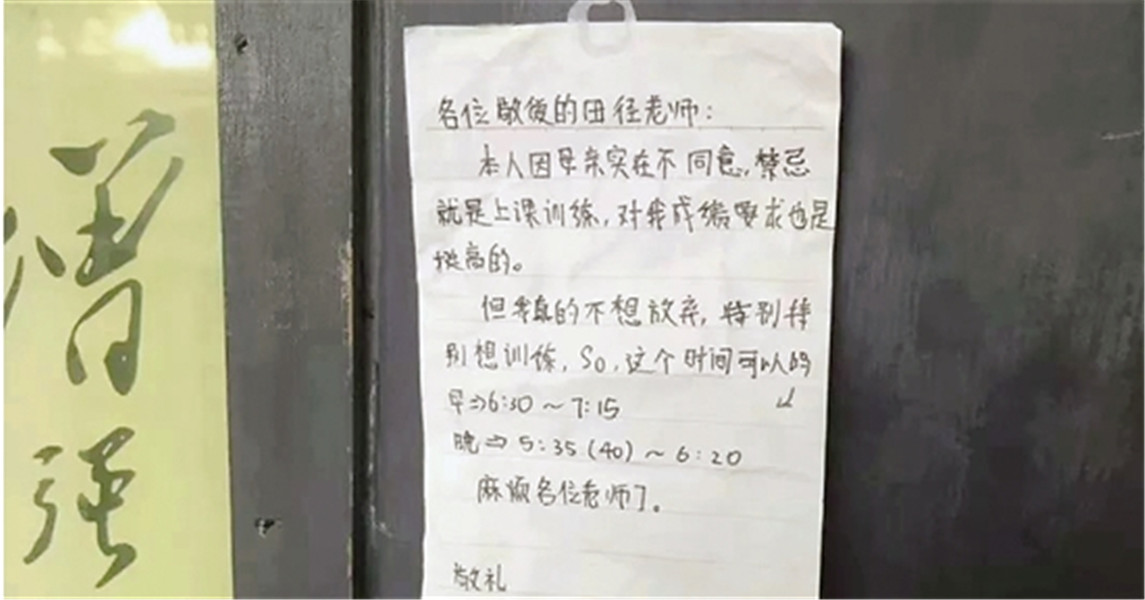 增
强
各位敬爱的田径老师：
本人因母亲实在不同意，禁忌
就是上课训练，对我成绩要求也是
挺高的。
但我真的不想放弃，特别特
别想训练，So，这个时间可以吗
早⇒6:30～7:15
晚⇒5:35(40)～6:20
麻烦各位老师了。
敬礼